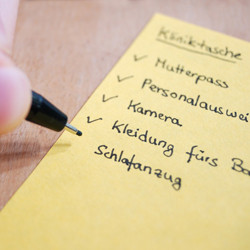 Kliniktasche
✓ Mutterpass
✓ Personalauswei
✓ Kamera
✓ Kleidung fürs Ba
Schlafanzug